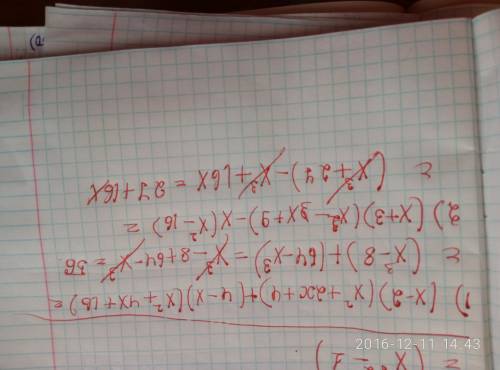 = (x² - 7)
1) (x-2)(x²+2x+4)+(4-x)(x²+4x+16)=
= (x³-8)+(64-x³)=x³-8+64-x³=56
2) (x+3)(x²-3x+9)-x(x²-16)=
= (x³+27)-x³+16x=27+16x
2016-12-11 14.43